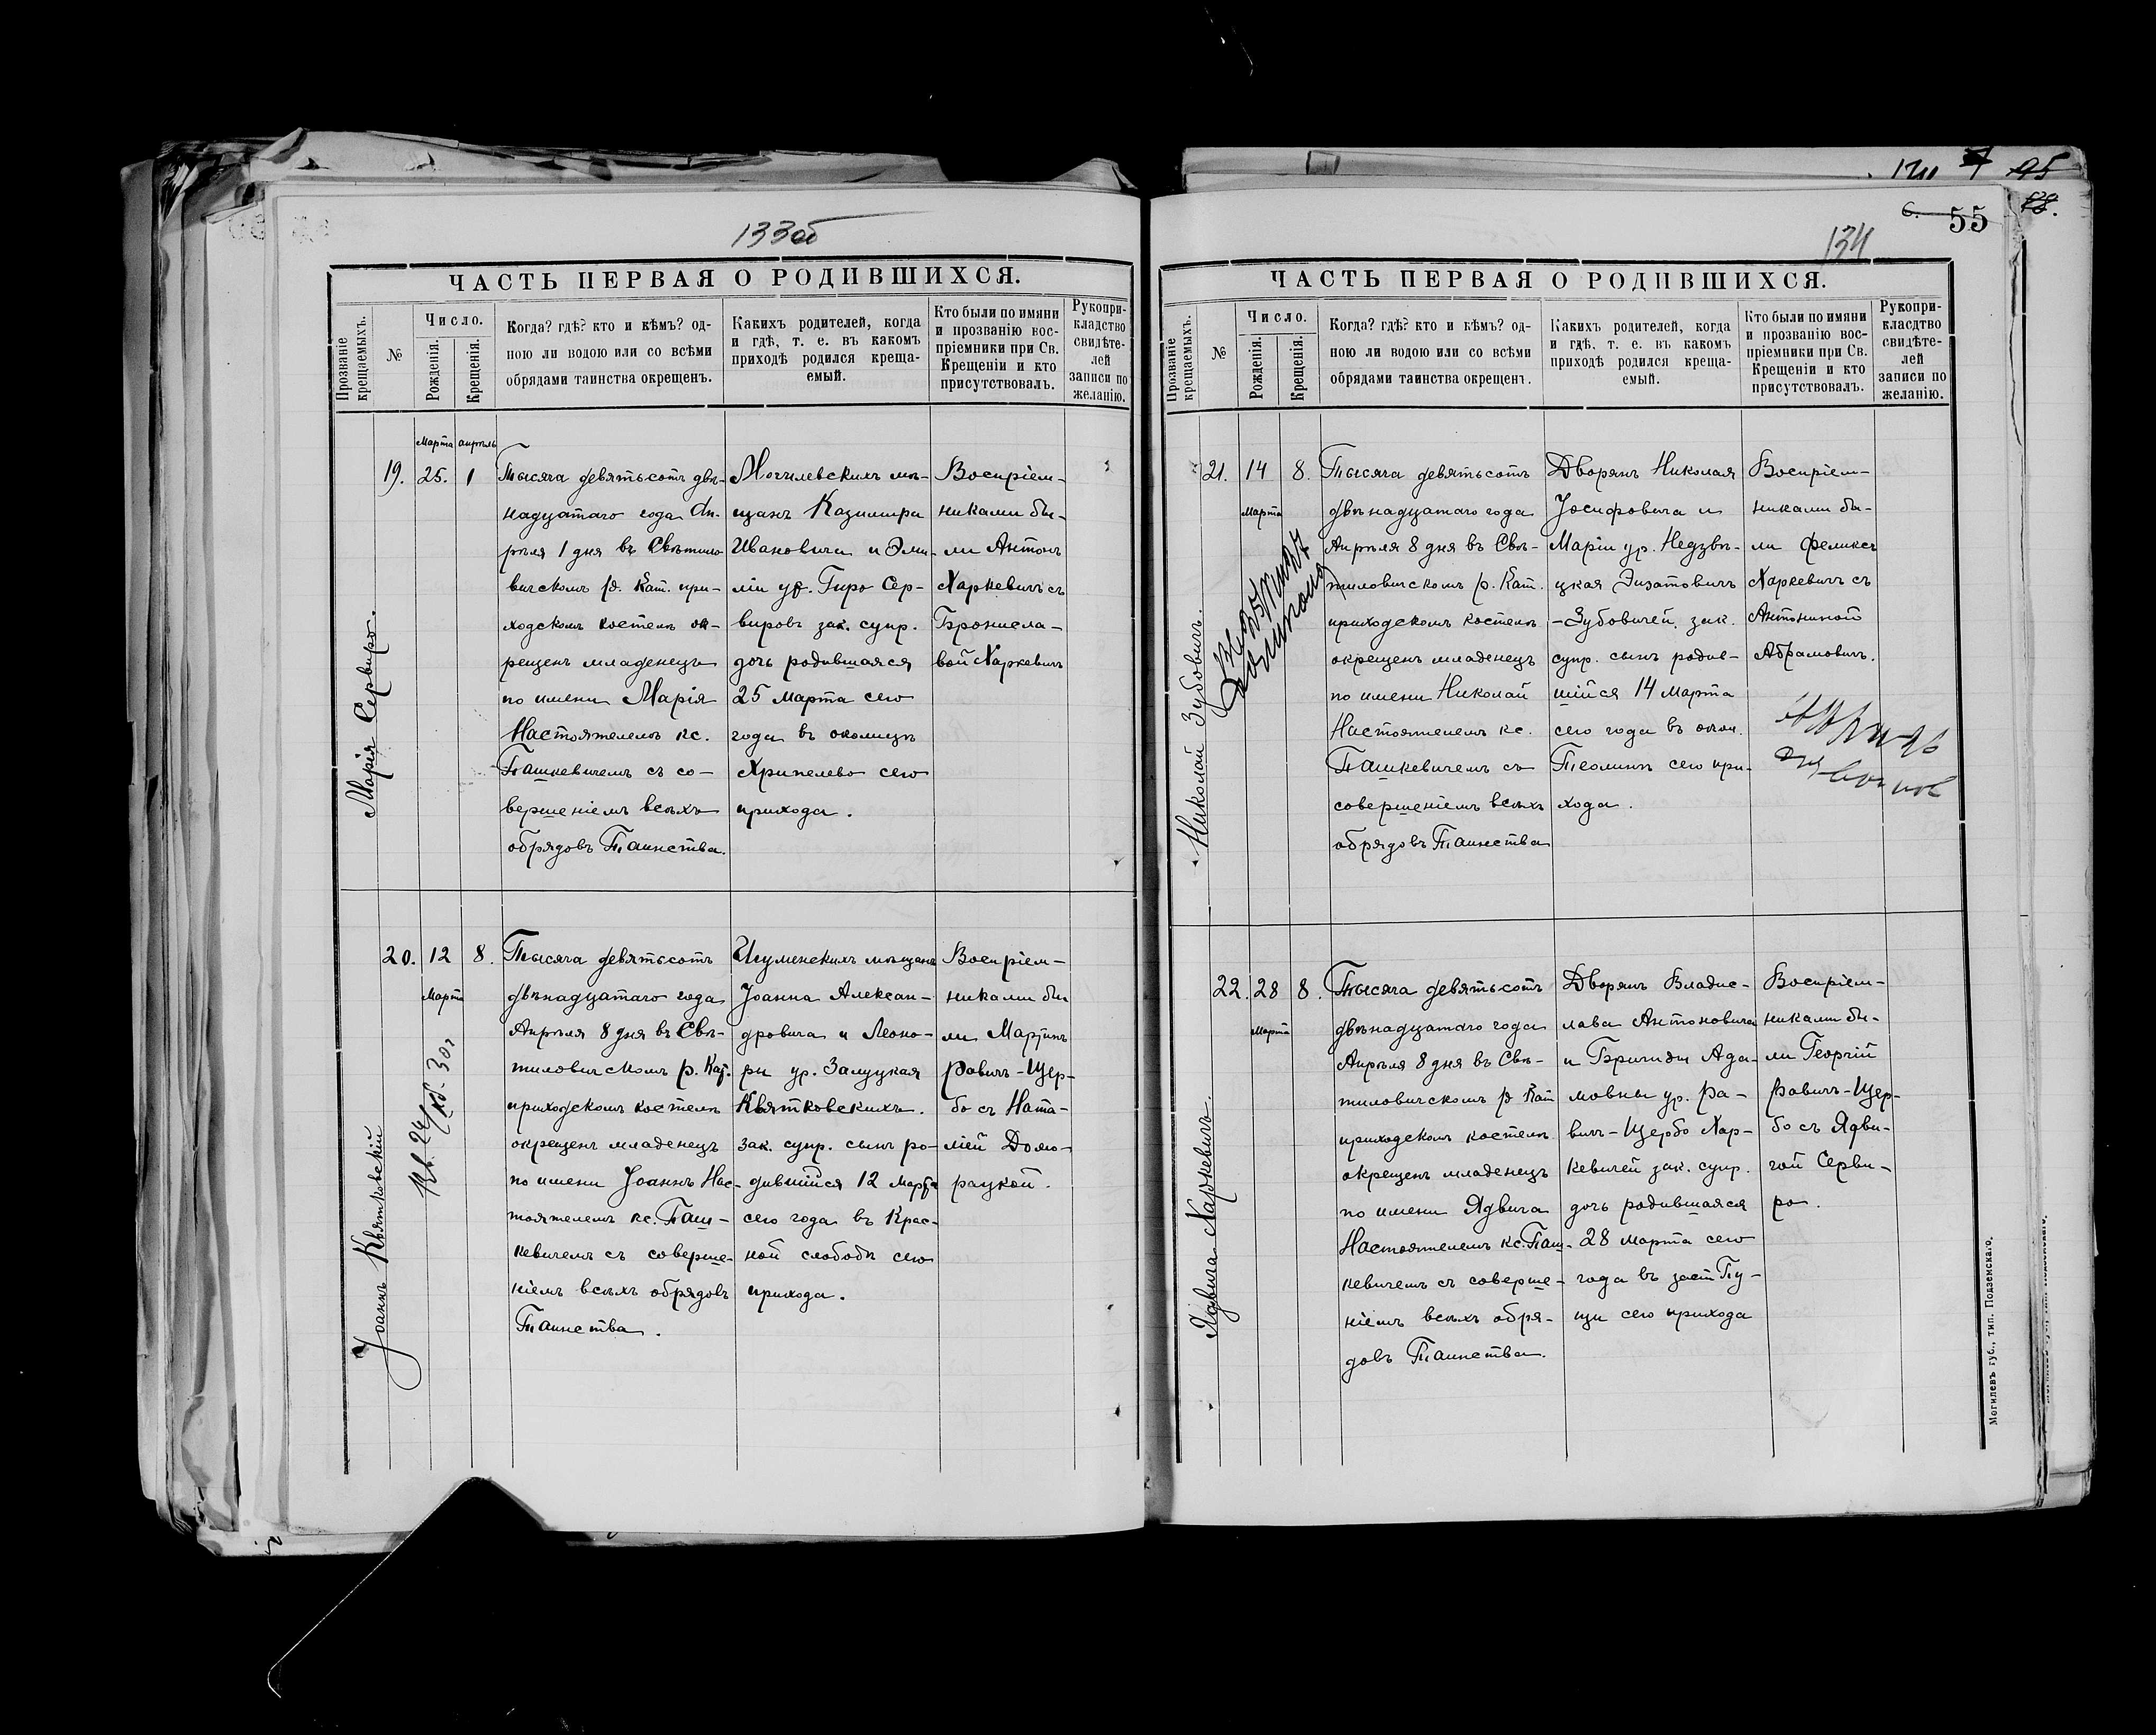 133об
ЧАСТЬ ПЕРВАЯ О РОДИВШИХСЯ.
Прозваніе крещаемыхъ.
№
Число.
Рожденія.
Крещенія.
Когда? гдѣ? кто и кѣмъ? од-
ною ли водою или со всѣми
обрядами таинства окрещенъ.
Какихъ родителей, когда
и гдѣ, т. е. въ какомъ
приходѣ родился креща-
емый.
Кто были по имяни
и прозванію вос-
пріемники при Св.
Крещеніи и кто
присутствовалъ.
Рукопри-
кладство
свидѣте-
лей
записи по
желанію.
Марія Сервиро.
19.
Марта
25.
апрѣль
1
Тысяча девятьсотъ двѣ-
надцатаго года Ап-
рѣля 1 дня въ Свѣтило
вичскомъ р. Кат. при-
ходскомъ костелѣ ок-
рещенъ младенецъ
по имени Марія
Настоятелемъ кс.
Пашкевичемъ съ со-
вершеніемъ всѣхъ
обрядовъ Таинства.
Могилевскихъ мѣ-
щанъ Казимира
Ивановича и Эми-
ліи ур. Гиро Сер-
вировъ зак. супр.
дочь родившаяся
25 Марта сего
года въ околицѣ
Хрипелево сего
прихода.
Воспріем-
никами бы-
ли Антонъ
Харкевичъ съ
Брониcла-
вой Харкевичъ
Іоаннъ Квятковскій
20.
12
Марта
8.
Тысяча девятьсотъ
двѣнадцатаго года
Апрѣля 8 дня въ Свѣ-
тиловичскомъ р. Кат.
приходскомъ костелѣ
окрещенъ младенецъ
по имени Іоаннъ Нас-
тоятелемъ кс. Паш-
кевичемъ съ соверше-
ніемъ всѣхъ обрядовъ
Таинства.
Игуменскихъ мѣщанъ
Іоанна Алексан-
дровича и Леоно-
ры ур. Залуцкая
Квятковскихъ.
зак. супр. сынъ ро-
дившійся 12 Марта
сего года въ Крас-
ной слободѣ сего
прихода.
Воспріем-
никами бы
ли Мартинъ
Равичъ-Щер-
бо съ Ната-
ліей Домо-
рацкой.
55
134
ЧАСТЬ ПЕРВАЯ О РОДИВШИХСЯ.
Прозваніе крещаемыхъ.
№
Число.
Рожденія.
Крещенія.
Когда? гдѣ? кто и кѣмъ? од-
ною ли водою или со всѣми
обрядами таинства окрещенъ.
Какихъ родителей, когда
и гдѣ, т. е. въ какомъ
приходѣ родился креща-
емый.
Кто были по имяни
и прозванію вос-
пріемники при Св.
Крещеніи и кто
присутствовалъ.
Рукопри-
класдтво
свидѣте-
лей
записи по
желанію.
Николай Зубовичъ.
21.
14
Марта
8.
Тысяча девятьсотъ
двѣнадцатаго года
Апрѣля 8 дня въ Свѣ-
тиловичскомъ р. Кат.
приходскомъ костелѣ
окрещенъ младенецъ
по имени Николай
Настоятелемъ кс.
Пашкевичемъ съ
совершеніемъ всѣхъ
обрядовъ Таинства
Дворянъ Николая
Іосифовича и
Маріи ур. Недзвѣ-
цкая
-Зубовичей, зак.
супр. сынъ родив-
шійся 14 Марта
сего года въ окол.
Теолинъ сего при-
хода.
Воспріем-
никами бы-
ли Феликсъ
Харкевичъ съ
Антониной
Абрамовичъ.
Ядвига Харкевичъ.
22.
28
Марта
8.
Тысяча девятьсотъ
двѣнадцатаго года
Апрѣля 8 дня въ Свѣ-
тиловичскомъ р Кат
приходскомъ костелѣ
окрещенъ младенецъ
по имени Ядвига
Настоятелемъ кс. Паш-
кевичемъ съ соверше-
ніемъ всѣхъ обря-
довъ Таинства.
Дворянъ Владис-
лава Антоновича
и Бригиды Ада-
мовны ур. Ра-
вичъ-Щербо Хар-
кевичей зак. супр.
дочь родившаяся
28 Марта сего
года въ заст Пу-
щи сего прихода
Воспріем-
никами бы-
ли Георгій
Равичъ-Щер-
бо съ Ядви-
гой Серви-
ро.
Могилевъ губ., тип. Подземскаго.